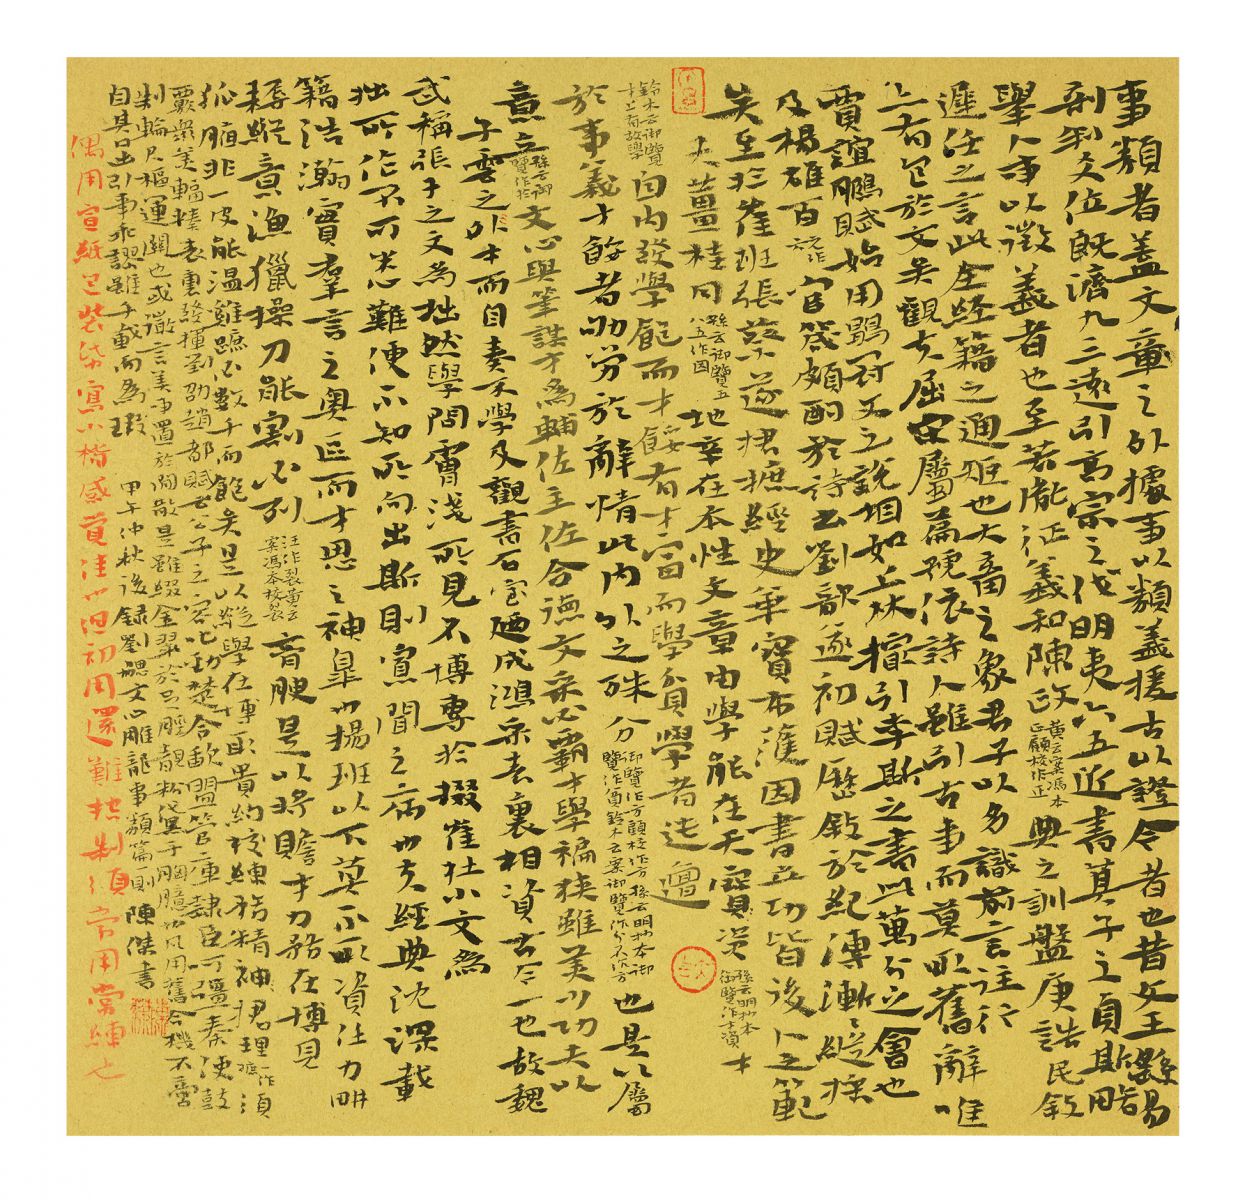 事類者蓋文章之外據事以類義援古以證今者也昔文王繇易
剖判爻位既濟九三遠引高宗之伐明夷六五近書箕子之貞斯略
舉人事以徵義者也至若胤征羲和陳政黃云案馮本正顧校作正典之訓盤庚誥民敘
遲任之言此全經籍之通矩也大畜之象君子以多識前言往行
亦有包於文矣觀夫屈宋屬篇號依詩人雖引古事而莫取舊辭唯
賈誼鵩賦始用鶡冠之說相如上林撮引李斯之書此萬分之會也
及楊雄百疑作官箴頗酌於詩書劉歆遂初賦歷敘於紀傳漸漸綜採
矣至於崔班張蔡遂捃摭經史華實布濩因書立功皆後人之範
夫薑桂同孫云御覽五八五作因地辛在本性文章由學能在天資孫云明抄本御覽作才資才
鈴木云御覽才上有故學自內發學飽而才餒有才富而學貧學者迍邅
於事義才餘者劬勞於辭情此內外之殊分御覽作方顧校作方孫云明抄本御覽作價鈴木云案御覽作分不作方也是以屬
意立孫云御覽作於文心與筆謀才為輔佐主佐合德文采必霸才學褊狹雖美少功夫以
子雲之才而自奏不學及觀書石室廼成鴻采表裏相資古今一也故魏
武稱張子之文為拙然學問膚淺所見不博專拾掇崔杜小文為
拙所作不可悉難便不知所出斯則寡聞之病也夫經典沈深載
籍浩瀚實羣言之奧區而才思之神皋也揚班以下莫不取資任力耕
耨縱意漁獵操刀能割必列汪作裂黃云案馮本校裂膏腴是以將贍才力務在博見
狐腋非一皮能溫雞蹠必數千而飽矣是以綜學在博取貴約校練務精捃理須
覈眾美輻輳表裏發揮劉劭趙都賦云公子之客叱勁楚令歃盟管庫隸臣呵強秦使鼓
制輪尺樞運關也或微言美事置於閑散是雖綴金翠於足脛靚粉黛于胸臆也凡用舊合機不啻
自其口出引事乖謬雖千載而為瑕 甲午仲秋後錄劉勰文心雕龍事類篇則 陳傑書
偶用宣紙包裝袋寫小楷感覺佳也但初用還難控制須常用常練也